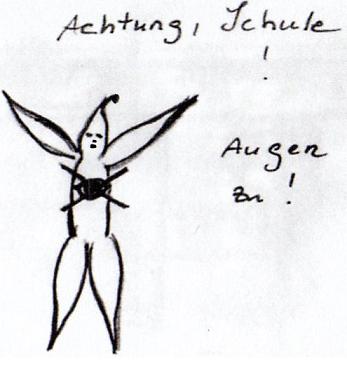 Achtung, Schule
!
Augen
zu!